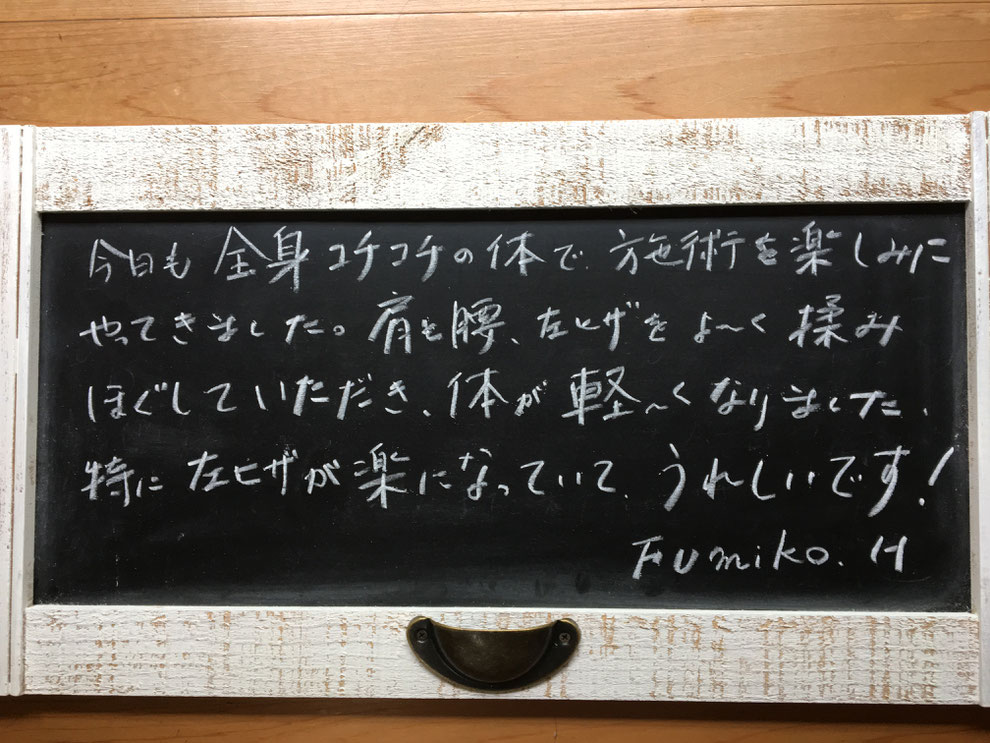 今日も全身コチコチの体で、施術を楽しみに
やってきました。肩も腰、左ヒザをよ〜く揉み
ほぐしていただき、体が軽〜くなりました、
特に左ヒザが楽になっていて、うれしいです!
Fumiko. H